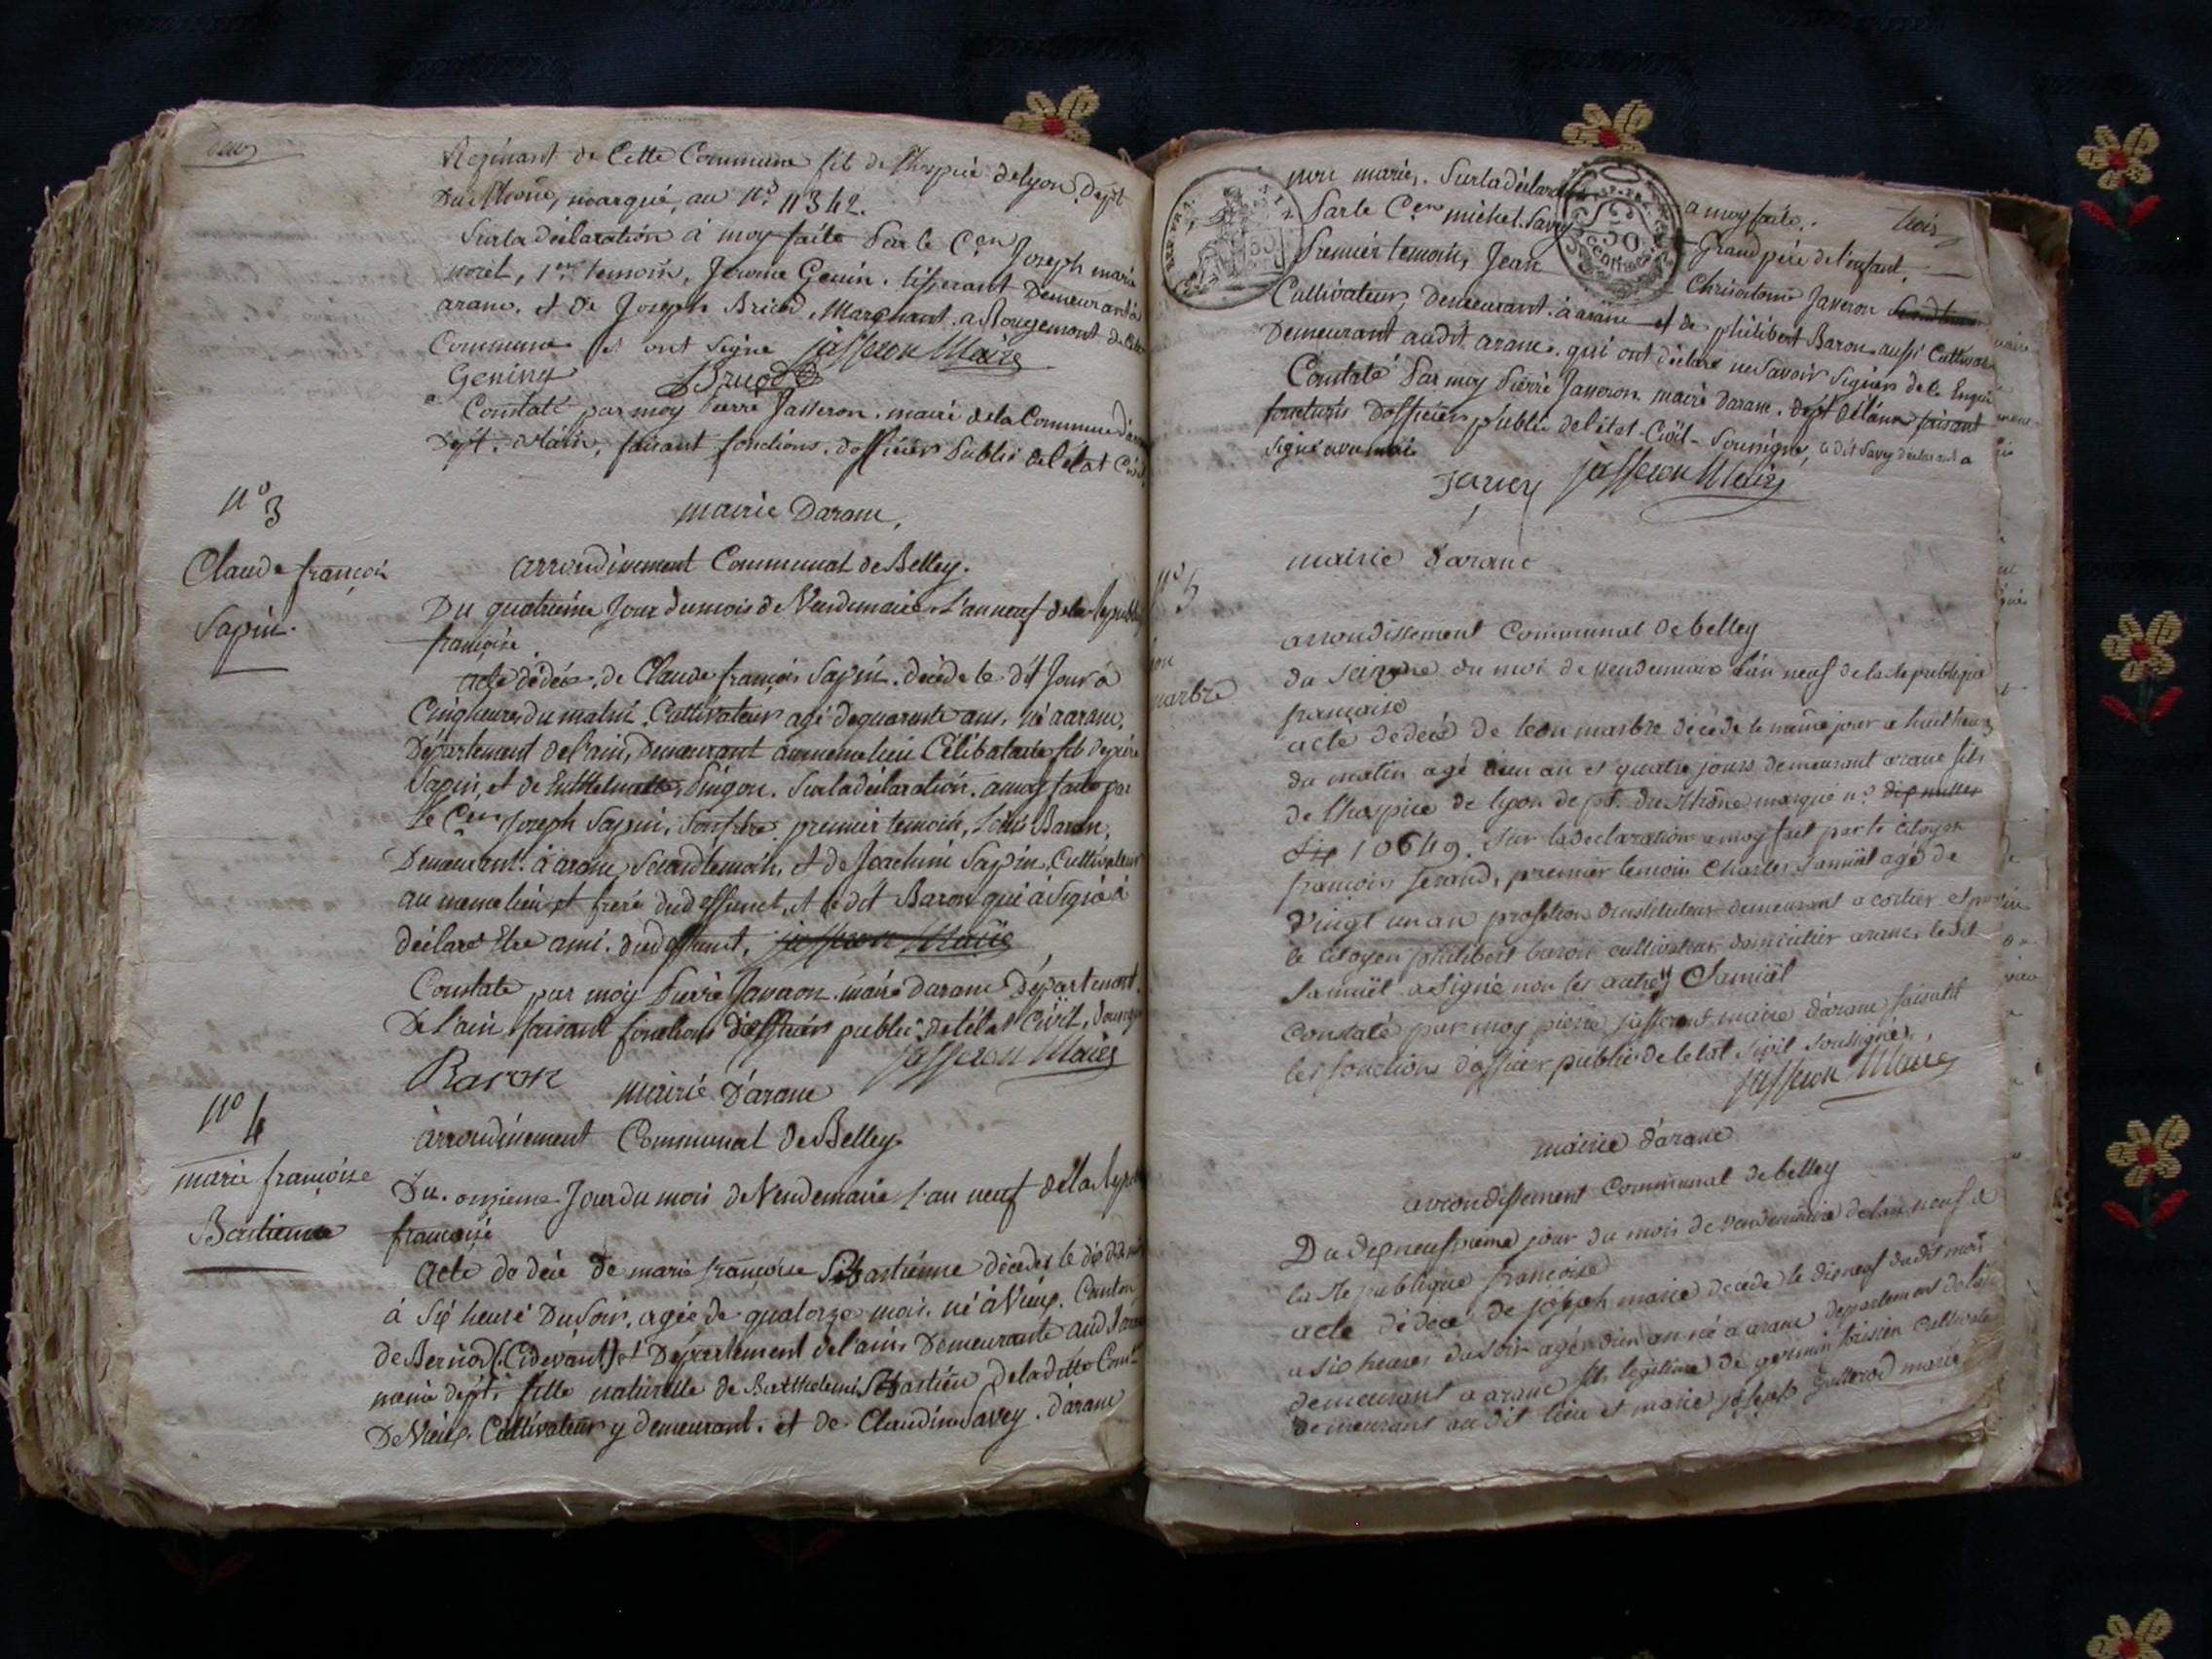 deux
Résidant de Cette Commune fils de l'hospice de lyon, dept
Du Rhône, marqué, au N.o 11342.
Surla déclaration à moy faite Par le C.en Joseph marie
1.er temoin, Jerome Genin. tisserant Demeurant à
aranc. et de Joseph Bricod, Marchant. a Rougemont de
Commune et ont Signé jasseron Maire
Genin Bricod
Constaté par moy Pierre Jasseron. maire dela Commune d'
Dept. de l'ain, faisant fonctions. dofficier Public de l'état Civil
N.o 3
Claude françois
Sapin.
mairie Daranc,
arrondissement Communal de Belley.
Du quatrieme Jour dumois de Vendemiaire L'an neuf dela
françoise
acte dédée, de Claude françois Sapin. décédé le dit Jour à
Cinq heures du matin. Cultivateur agé dequarante ans, né aaranc,
Département del'ain, Demeurant aumeme lieu Célibataire fils de
Sapin, et de Pingon. Surladéclaration. amoy faite par
le C.en Joseph Sapin, Son frere premier temoin, Louis Baron,
Demeurant. à aranc Second temoin, et de Joachim Sapin, Cultivateur
au meme lieu et frere dudeffunct, et le dit Baron qui à Signé à
déclaré Etre ami. dudeffunct, jasseron Maire
Constaté par moy Pierre Jasseron. maire daranc Département.
De l'ain faisant fonctions dofficier public de l'état Civil,
Baron jasseron Maire
N.o 4
marie françoise
Bastienne
mairie D'aranc
arrondissement Communal de Belley.
Du. onzieme Jour du mois de Vendemiaire L'an neuf dela
françoise
Acte de décé de marie françoise Sébastienne décédée le dix
à Six heure Du Soir, agée de quatorze mois. né à Vieux. Canton
de Bernod (Cidevant) et Département de l'ain Demeurante
meme dept. fille naturelle de Barthelemi Sébastien deladitte
De Vieux. Cultivateur y demeurant. et de Claudine Savey. d'aranc
non marié. Surladéclaration a moy faite. trois
Parle C.en michel Savey Grand père de l'enfant.
Premier temoin, Jean Chrisostome Jasseron
Cultivateur, Demeurant. à aranc et de philibert Baron aussi
Demeurant audit aranc. qui ont déclaré ne Savoir Signer de le
Constaté Par moy Pierre Jasseron maire daranc. dept de l'ain faisant
fonctions Dofficier public del'état Civil Soussigné, le dit Savey
signé avec moi
savey jasseron Maire
50
N.o 5
marbre
mairie d'aranc
arrondissement Communal de belley
du du moi de vendemiaire l'an neuf de la Republique
françoise
acte de décé de leon marbre décédé le même jour a huit heures
du matin agé d'un an et quatre jours demeurant aranc fils
de l'hospice de lyon dept. du Rhône marqué n.o dix milles
Six 10649. sur la declaration a moy fait par le citoyen
françois premier temoin Charles Samüel agé de
Vingt un an profession dinstituteur demeurant a corlier et
le citoyen philibert baron cultivateur domicilier aranc, ledit
Samuël a signé non les autres Samüel
Constaté par moy pierre jasseron maire d'aranc faisant
les fonctions d'officier publique de letat sivil soussignés,
jasseron Maire
mairie d'aranc
arrondissement Communal de belley
Du dixneufvieme jour du mois de vendemiaire de l'an neuf de
la Republique françoise
acte de décé de joseph marie décédé le dixneuf du dit mois
a six heures du soir agé d'un an né a aranc departement de l'ain
demeurant a aranc fils légitime de germain cultivateur
demeurant audit lieu et marie joseph marié